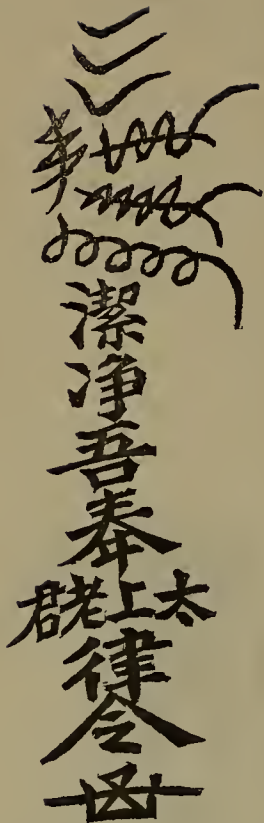 潔净吾奉
太上老君
律令